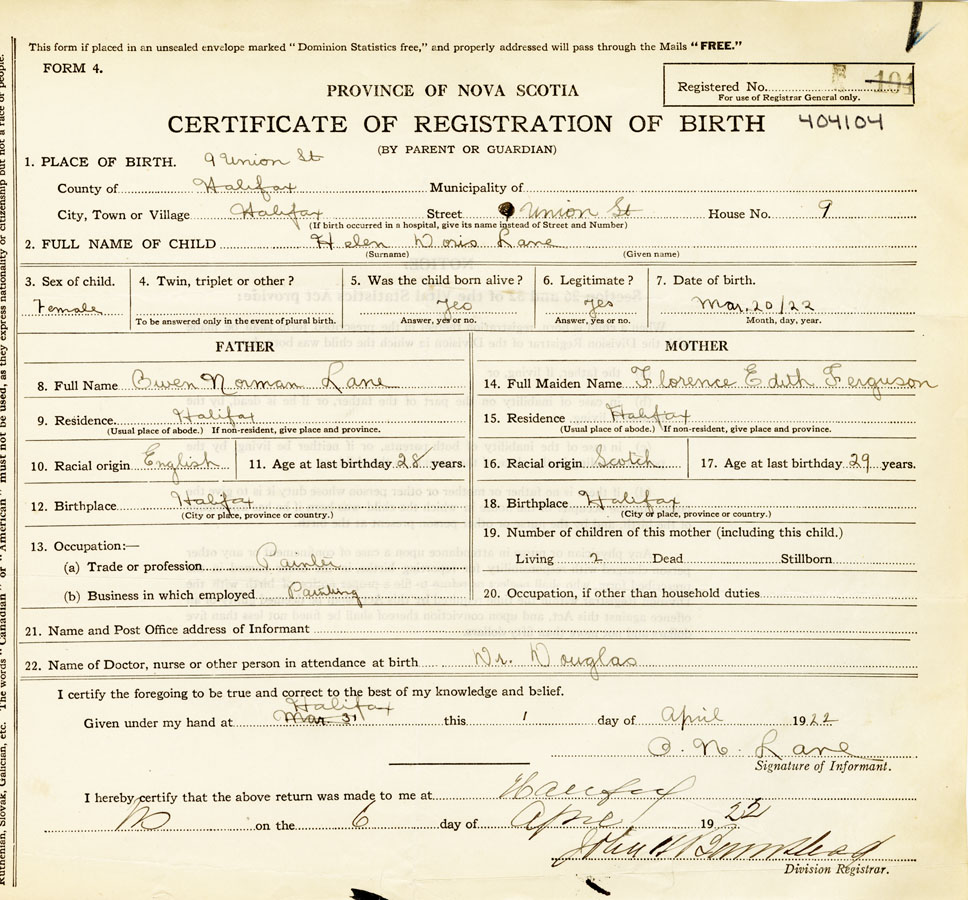 This form if placed in an unsealed envelope marked "Dominion Statistics free," and properly addressed will pass through the Mails "FREE."
FORM 4.
Registered No. 104
For use of Registrar General only.
PROVINCE OF NOVA SCOTIA
CERTIFICATE OF REGISTRATION OF BIRTH 404104
(BY PARENT OR GUARDIAN)
1. PLACE OF BIRTH. 9 Union St
County of Halifax Municipality of
City, Town or Village Halifax Street Union St House No. 9
(If birth occurred in a hospital, give its name instead of Street and Number)
2. FULL NAME OF CHILD Helen Doris Lane
(Surname) (Given name)
3. Sex of child. 4. Twin, triplet or other? 5. Was the child born alive? 6. Legitimate? 7. Date of birth.
Female Yes Yes Mar. 20/22
To be answered only in the event of plural birth. Answer, yes or no. Answer, yes or no. Month, day, year.
FATHER
8. Full Name Owen Norman Lane
9. Residence. Halifax
(Usual place of abode.) If non-resident, give place and province.
10. Racial origin English 11. Age at last birthday 28 years.
12. Birthplace Halifax
(City or place, province or country.)
13. Occupation:—
(a) Trade or profession Painter
(b) Business in which employed Painting
MOTHER
14. Full Maiden Name Florence Edith Ferguson
15. Residence Halifax
(Usual place of abode.) If non-resident, give place and province.
16. Racial origin Scotch 17. Age at last birthday 29 years.
18. Birthplace Halifax
(City or place, province or country.)
19. Number of children of this mother (including this child.)
Living 2 Dead Stillborn
20. Occupation, if other than household duties
21. Name and Post Office address of Informant
22. Name of Doctor, nurse or other person in attendance at birth Dr. Douglas
I certify the foregoing to be true and correct to the best of my knowledge and belief.
Halifax
Given under my hand at Mar. 31 this 1 day of April 1922
O. N. Lane
Signature of Informant.
I hereby certify that the above return was made to me at Halifax
on the 6 day of April 1922
John
Division Registrar.
Ruthenian, Slovak, Galician, etc. The words "Canadian" or "American" must not be used, as they express nationality or citizenship but not a race or people.